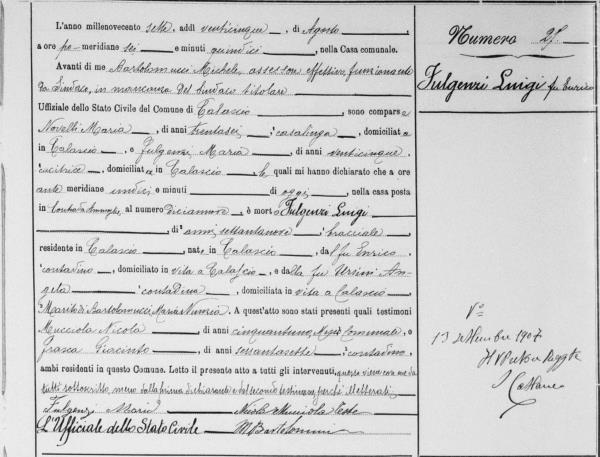 L'anno millenovecento sette, addì venticinque, di Agosto,
a ore po meridiane sei e minuti quindici, nella Casa comunale.
Avanti di me Bartolomucci Michele assessore effettivo funzionante
da Sindaco, in mancanza del Sindaco titolare
Uffiziale dello Stato Civile del Comune di Calascio, sono comparse
Novelli Maria, di anni trentasei, casalinga, domiciliata
in Calascio, e Fulgenzi Maria, di anni venticinque,
cucitrice, domiciliata in Calascio, le quali mi hanno dichiarato che a ore
ante meridiane undici e minuti di oggi, nella casa posta
in al numero diciannove, è morto Fulgenzi Luigi
, di anni settantanove, bracciale
residente in Calascio, nato in Calascio, da fu Enrico,
contadino, domiciliato in vita a Calascio, e dalla fu Ursini An-
gela contadina, domiciliata in vita a Calascio
Marito di Bartolomucci Maria Nunzia. A quest'atto sono stati presenti quali testimoni
Mucciola Nicola, di anni cinquantuno, e
Frasca Giacinto, di anni settantasette, contadino,
ambi residenti in questo Comune. Letto il presente atto a tutti gl'intervenuti, questi viene con me da
tutti sottoscritto, meno dalla prima dichiarante e del secondo testimone, perché illetterati
Fulgenzi Maria Nicola Mucciola Teste
L'Uffiziale dello Stato Civile M Bartolomucci
Numero 25.
Fulgenzi Luigi fu Enrico
V°
13 settembre 1907